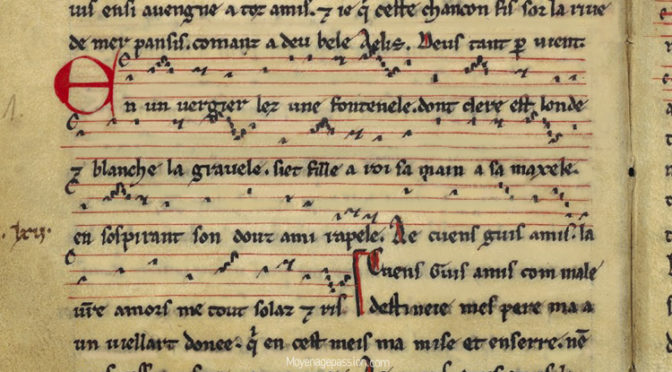 uis ensi auengne a toz amis. ⁊ ie q̃ ceste chancon fis sor la riue
de mer pansis. comant a deu bele Aelis. Deus tant ꝑ uient.
En un uergier lez une fontenele. dont clere est londe
⁊ blanche la grauele. siet fille a roi sa main a sa maxele.
en sospirant son douz ami rapele. Ae cuens guis amis. la
Cuens Guis amis com male
ur̃e amors me tout solaz ⁊ ris.
destineie mes pere ma a
un viellart donee. q̃ en cest meis ma mise et enserre. nẽ
.lxij.
Moyenagepassion.com